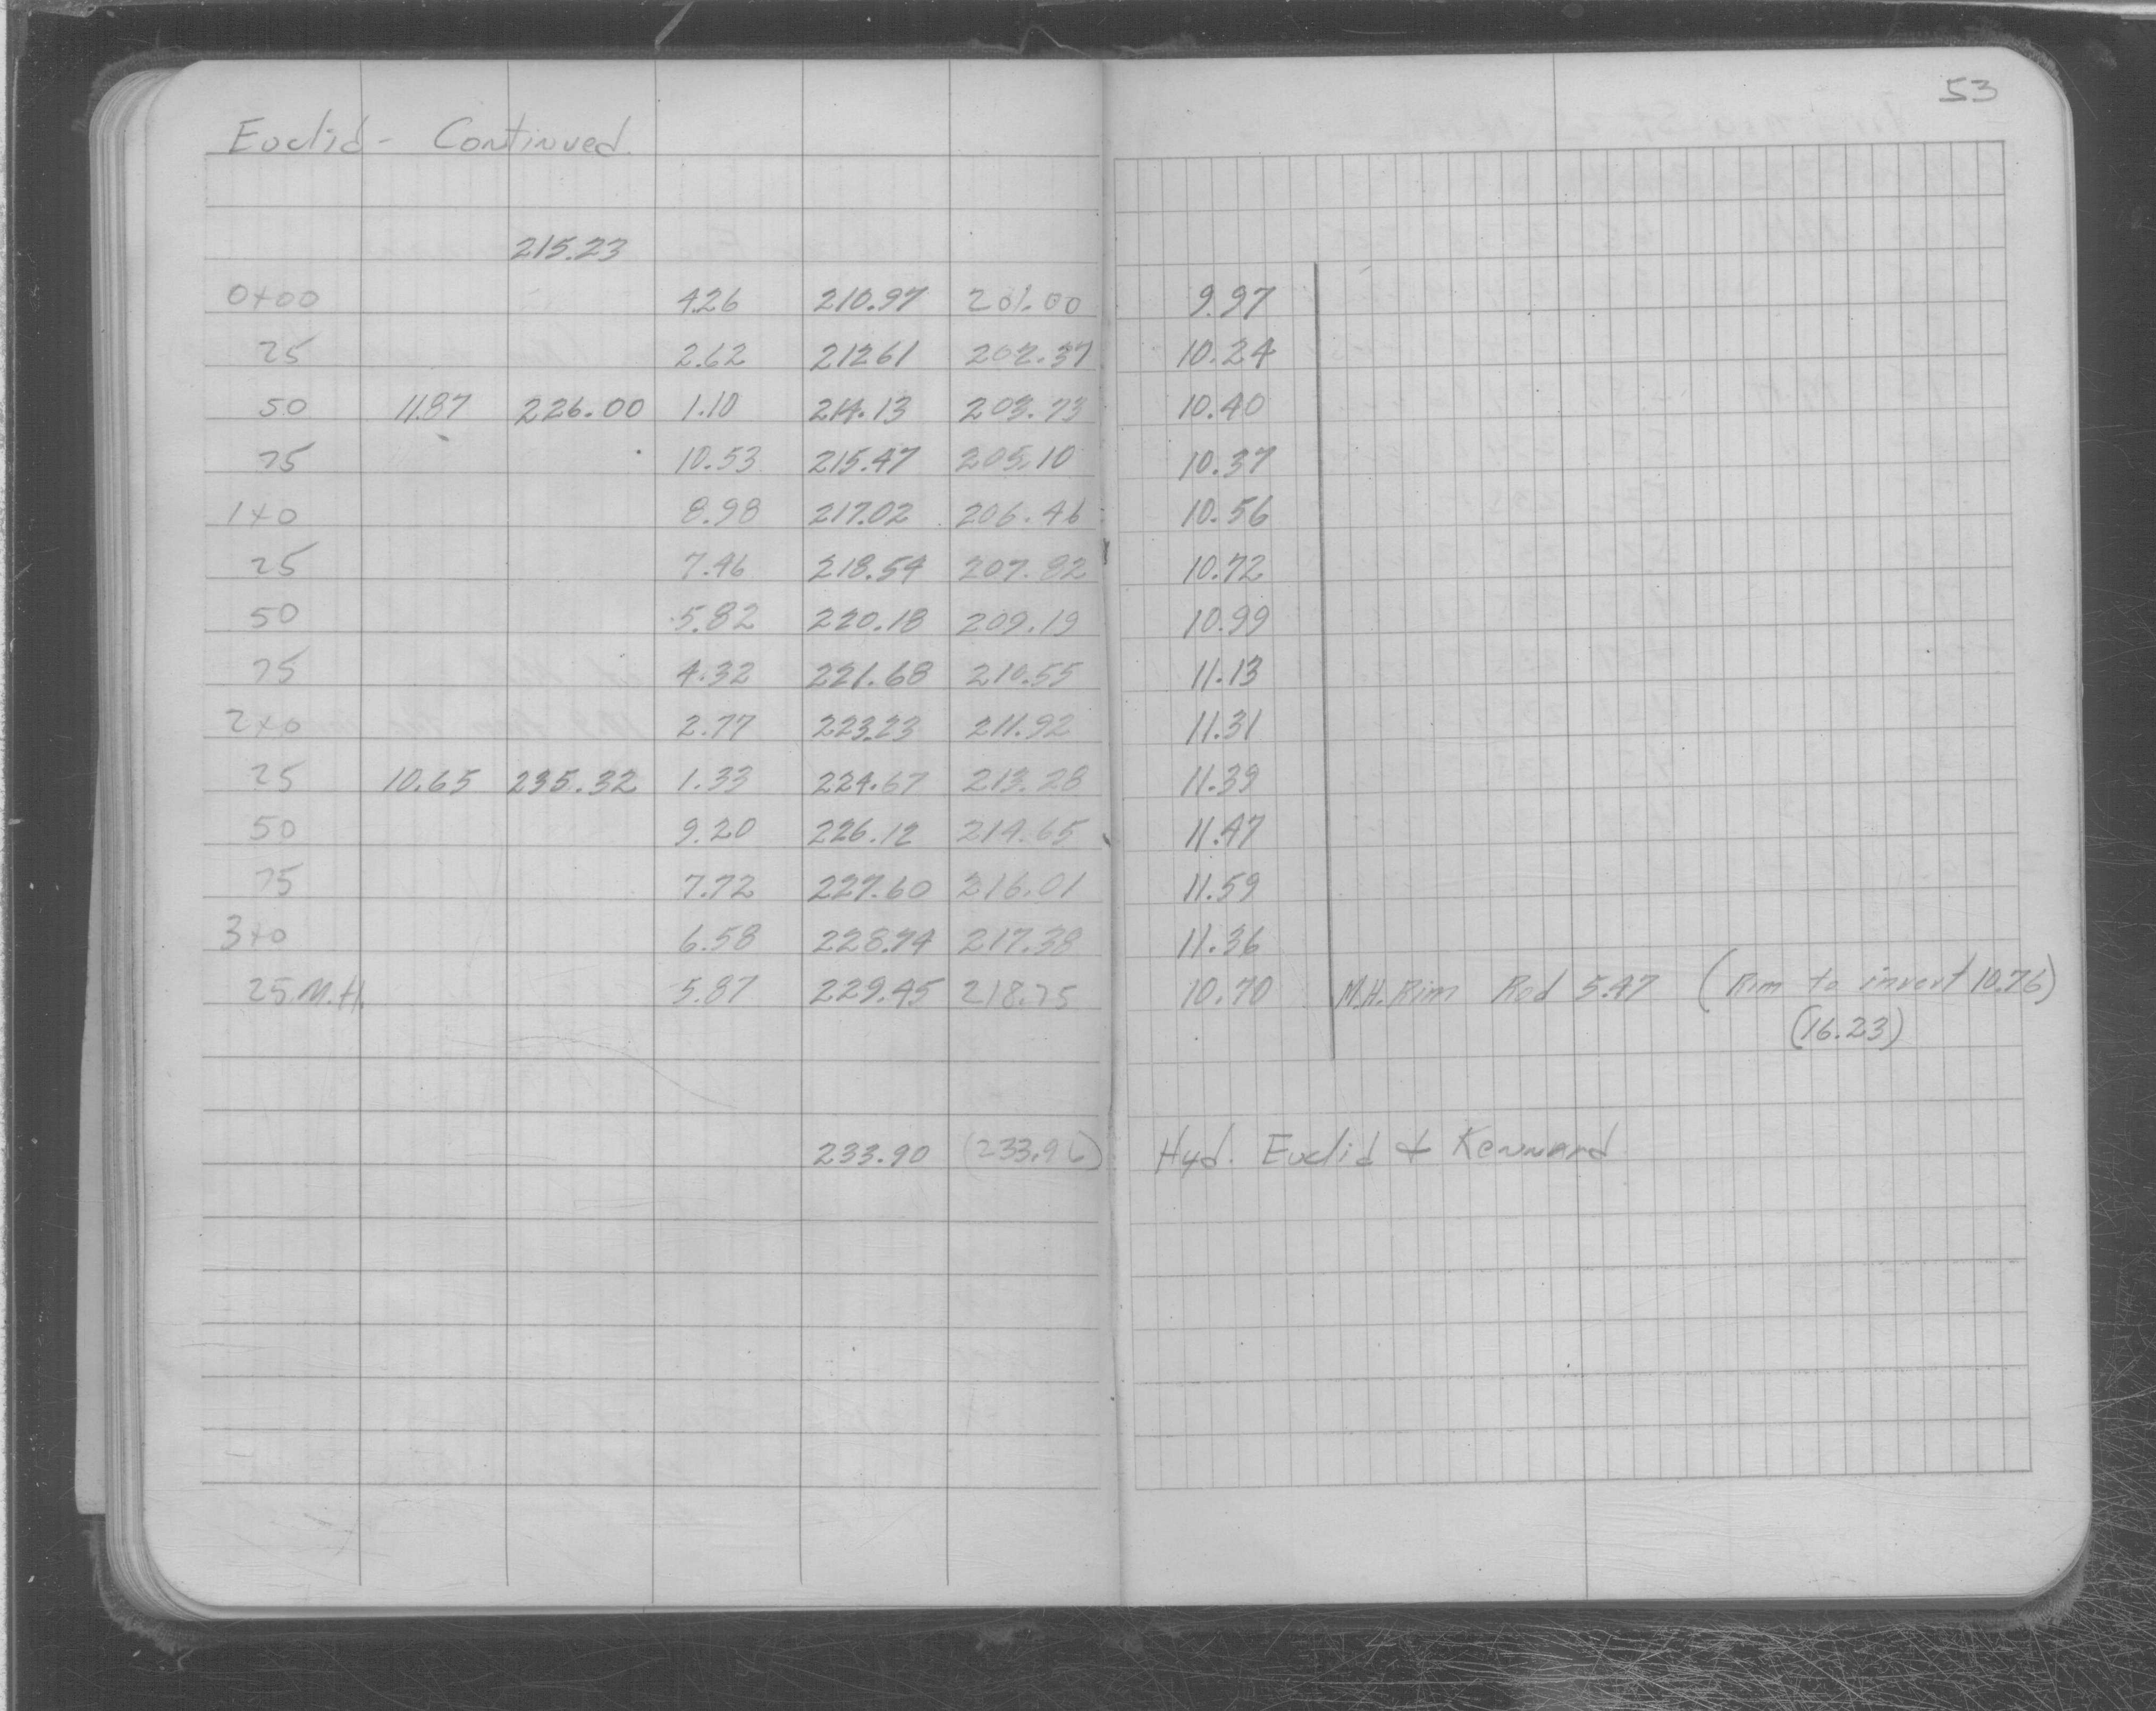 53
Euclid - Continued.
215.23
0+00 4.26 210.97 201.00 9.97
25 2.62 21261 202.37 10.24
50 11.87 226.00 1.10 214.13 203.73 10.40
75 10.53 215.47 205.10 10.37
1+0 8.98 217.02 206.46 10.56
25 7.46 218.54 207.82 10.72
50 5.82 220.18 209.19 10.99
75 4.32 221.68 210.55 11.13
2+0 2.77 223.23 211.92 11.31
25 10.65 235.32 1.33 224.67 213.28 11.39
50 9.20 226.12 214.65 11.47
75 7.72 227.60 216.01 11.59
3+0 6.58 228.74 217.38 11.36
25 M.H. 5.87 229.45 218.75 10.70 M.H. Rim Rod 5.47 (Rim to invert 10.76)
(16.23)
233.90 (233.96) Hyd. Euclid + Kennard